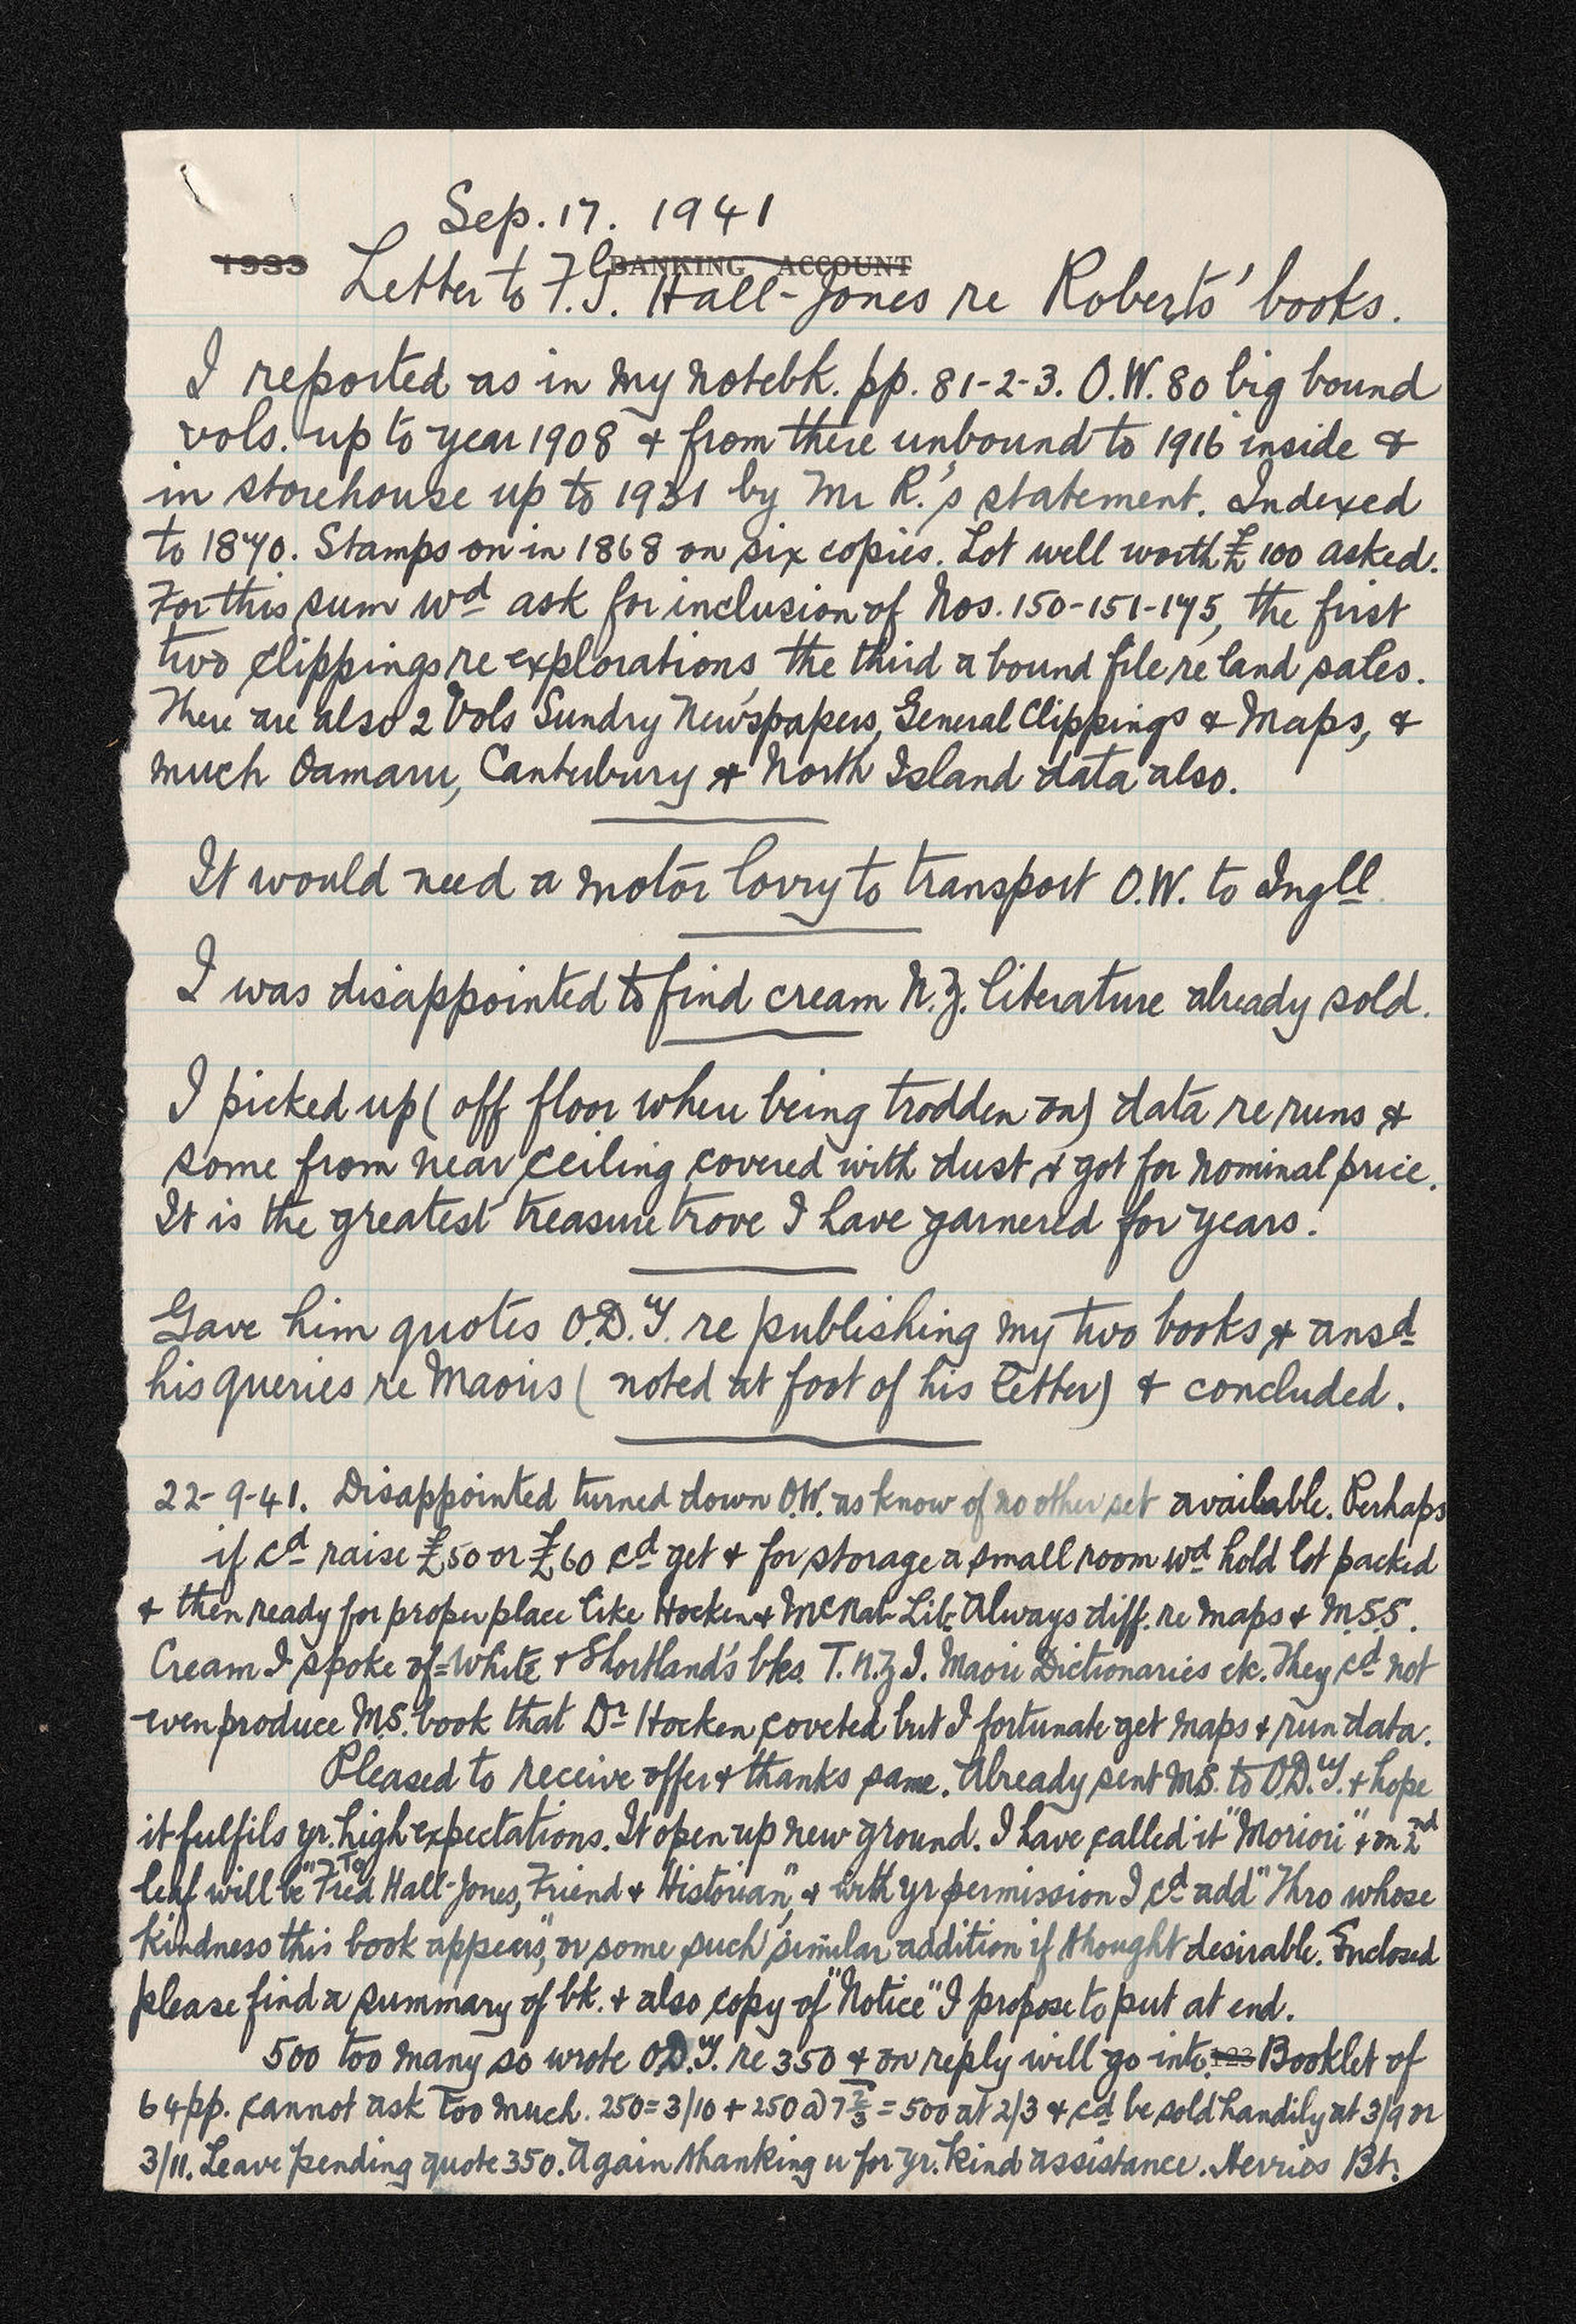 Sep. 17. 1941
1933 BANKING ACCOUNT
Letter to F.G. Hall-Jones re Roberts' books.
I reported as in my notebk. pp. 81-2-3. O.W. 80 big bound
vols. up to year 1908 & from there unbound to 1916 inside &
in storehouse up to 1931 by Mr R.'s statement. Indexed
to 1870. Stamps on in 1868 on six copies. Lot well worth £100 asked.
For this sum wd ask for inclusion of Nos. 150-151-175, the first
two clippings re explorations the third a bound file re land sales.
There are also 2 Vols Sundry Newspapers, General Clippings & Maps, &
much Oamaru, Canterbury & North Island data also.
It would need a motor lorry to transport O.W. to Ingll
I was disappointed to find cream N.Z. literature already sold.
I picked up (off floor where being trodden on) data re runs &
some from near ceiling covered with dust & got for nominal price.
It is the greatest treasure trove I have garnered for years.
Gave him quotes O.D.T. re publishing my two books & ansd
his queries re Maoris (noted at foot of his letter) & concluded.
22-9-41. Disappointed turned down O.W. as know of no other set available. Perhaps
if cd raise £50 or £60 cd get & for storage a small room wd hold lot packed
& then ready for proper place like Hocken & McNab Lib. Always diff. re maps & M.S.S.
Cream I spoke of = White & Shortland's bks. T.N.Z.I. Maori Dictionaries etc. They cd not
even produce MS. book that Dr Hocken coveted but I fortunate get maps & run data.
Pleased to receive offer & thanks same. Already sent MS. to O.D.T. & hope
it fulfils yr. high expectations. It open up new ground. I have called it "Moriori" & on 2nd
leaf will be "To Fred Hall-Jones, Friend & Historian", & with yr permission I cd add "Thro whose
kindness this book appears", or some such similar addition if thought desirable. Enclosed
please find a summary of bk. & also copy of "Notice" I propose to put at end.
500 too many so wrote O.D.T. re 350 & on reply will go into. 123 Booklet of
64 pp. cannot ask too much. 250 = 3/10 + 250 @ 7⅔ = 500 at 2/3 & cd be sold handily at 3/9 or
3/11. Leave pending quote 350. Again thanking u for yr. kind assistance. Herries Bt.